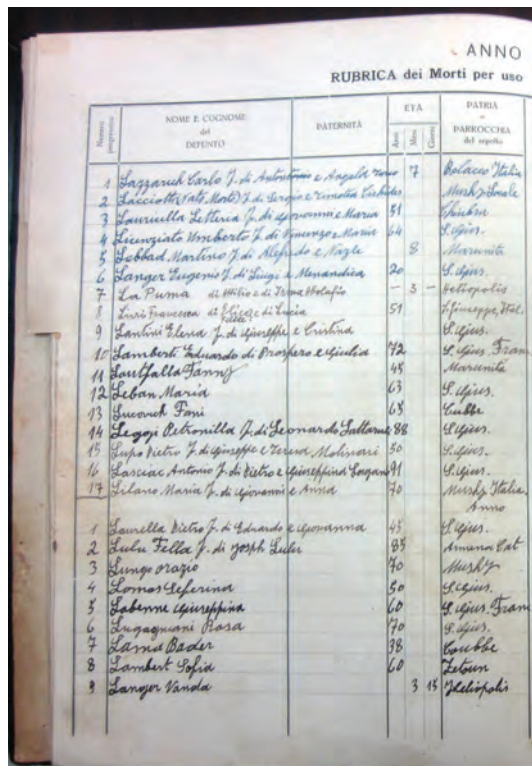 ANNO
RUBRICA dei Morti per uso
Numero progressivo
NOME E COGNOME del DEFUNTO
PATERNITÀ
ETÀ
Anni Mesi Giorni
PATRIA e PARROCCHIA del sepolto
1 Lazzarich Carlo f. di e Angela 7 Italia
2 f. di Sergio e Musky
3 Lauricella Letteria f. di Giovanni e Maria 51
4 Licenziato Umberto f. di Vincenzo e Maria 64 S. Gius.
5 Lebbad Martino f. di Alfredo e Nazle 8 Marunita
6 Langer Eugenio f. di Luigi e Menandica 20 S. Gius.
7 La Puma di Attilio e di Irma Molafio – 3 – Heliopolis
8 Livi Francesca di e di Lucia 51 S. Giuseppe, Ital.
9 Lantini Elena f. di Giuseppe e Cristina S. Gius.
10 Lamberti Eduardo di Prospero e Giulia 72 S. Gius. Fran
11 Loutfalla Fanny 45 Marunita
12 Leban Maria 63 S. Gius.
13 Lucovich Fani 65 Cubbe
14 Petronilla f. di Leonardo 88 S. Gius.
15 Lupo Pietro f. di Giuseppe e Teresa Molinari 50 S. Gius.
16 Lasciac Antonio f. di Pietro e Giuseppina 91 S. Gius.
17 Silano Maria f. di Giovanni e Anna 70 Musky Italia
Anno
1 Laurella Pietro f. di Eduardo e Giovanna 45 S. Gius.
2 Lulu Fella f. di Joseph Lulu 85 Armena Cat
3 Lungo Orazio 70 Musky
4 Lomas Seferina 50 S. Gius.
5 Labenne Giuseppina 60 S. Gius. Fran
6 Lugagnani Rosa 70 S. Gius.
7 Lama Bader 38 Coubbe
8 Lambert Sofia 60 Zetoun
9 Langer Vanda 3 15 Heliopolis